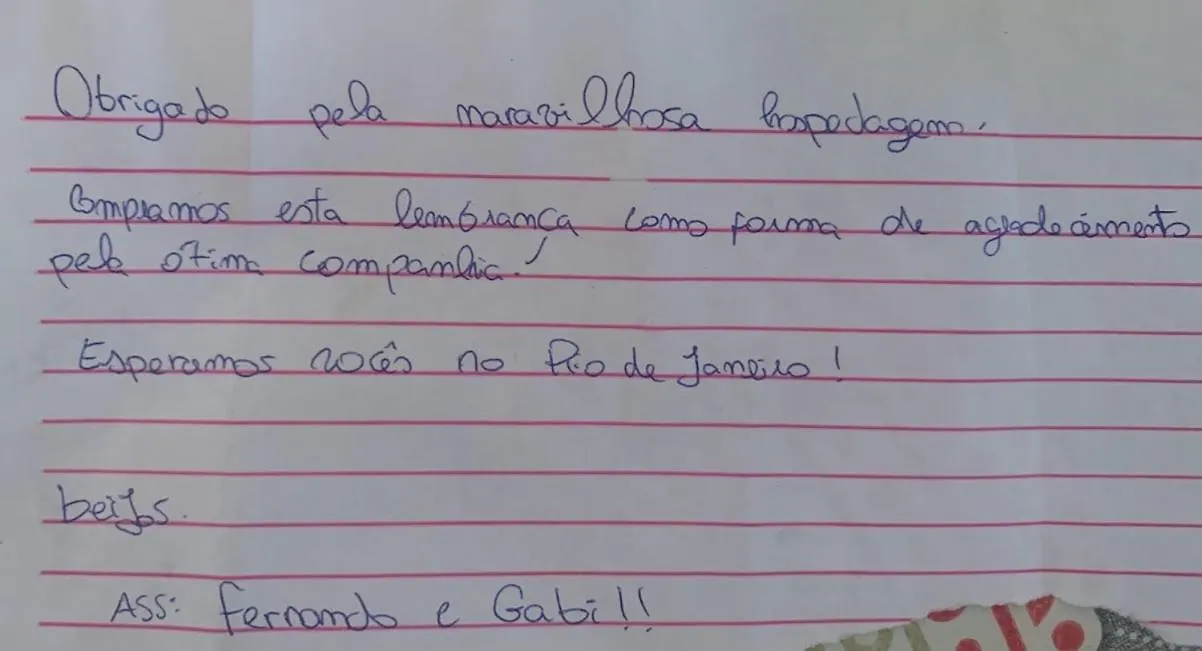 Obrigado pela maravilhosa hospedagem.
Compramos esta lembrança como forma de agradecimento
pela ótima companhia!
Esperamos vocês no Rio de Janeiro!
beijos.
ASS: Fernando e Gabi!!